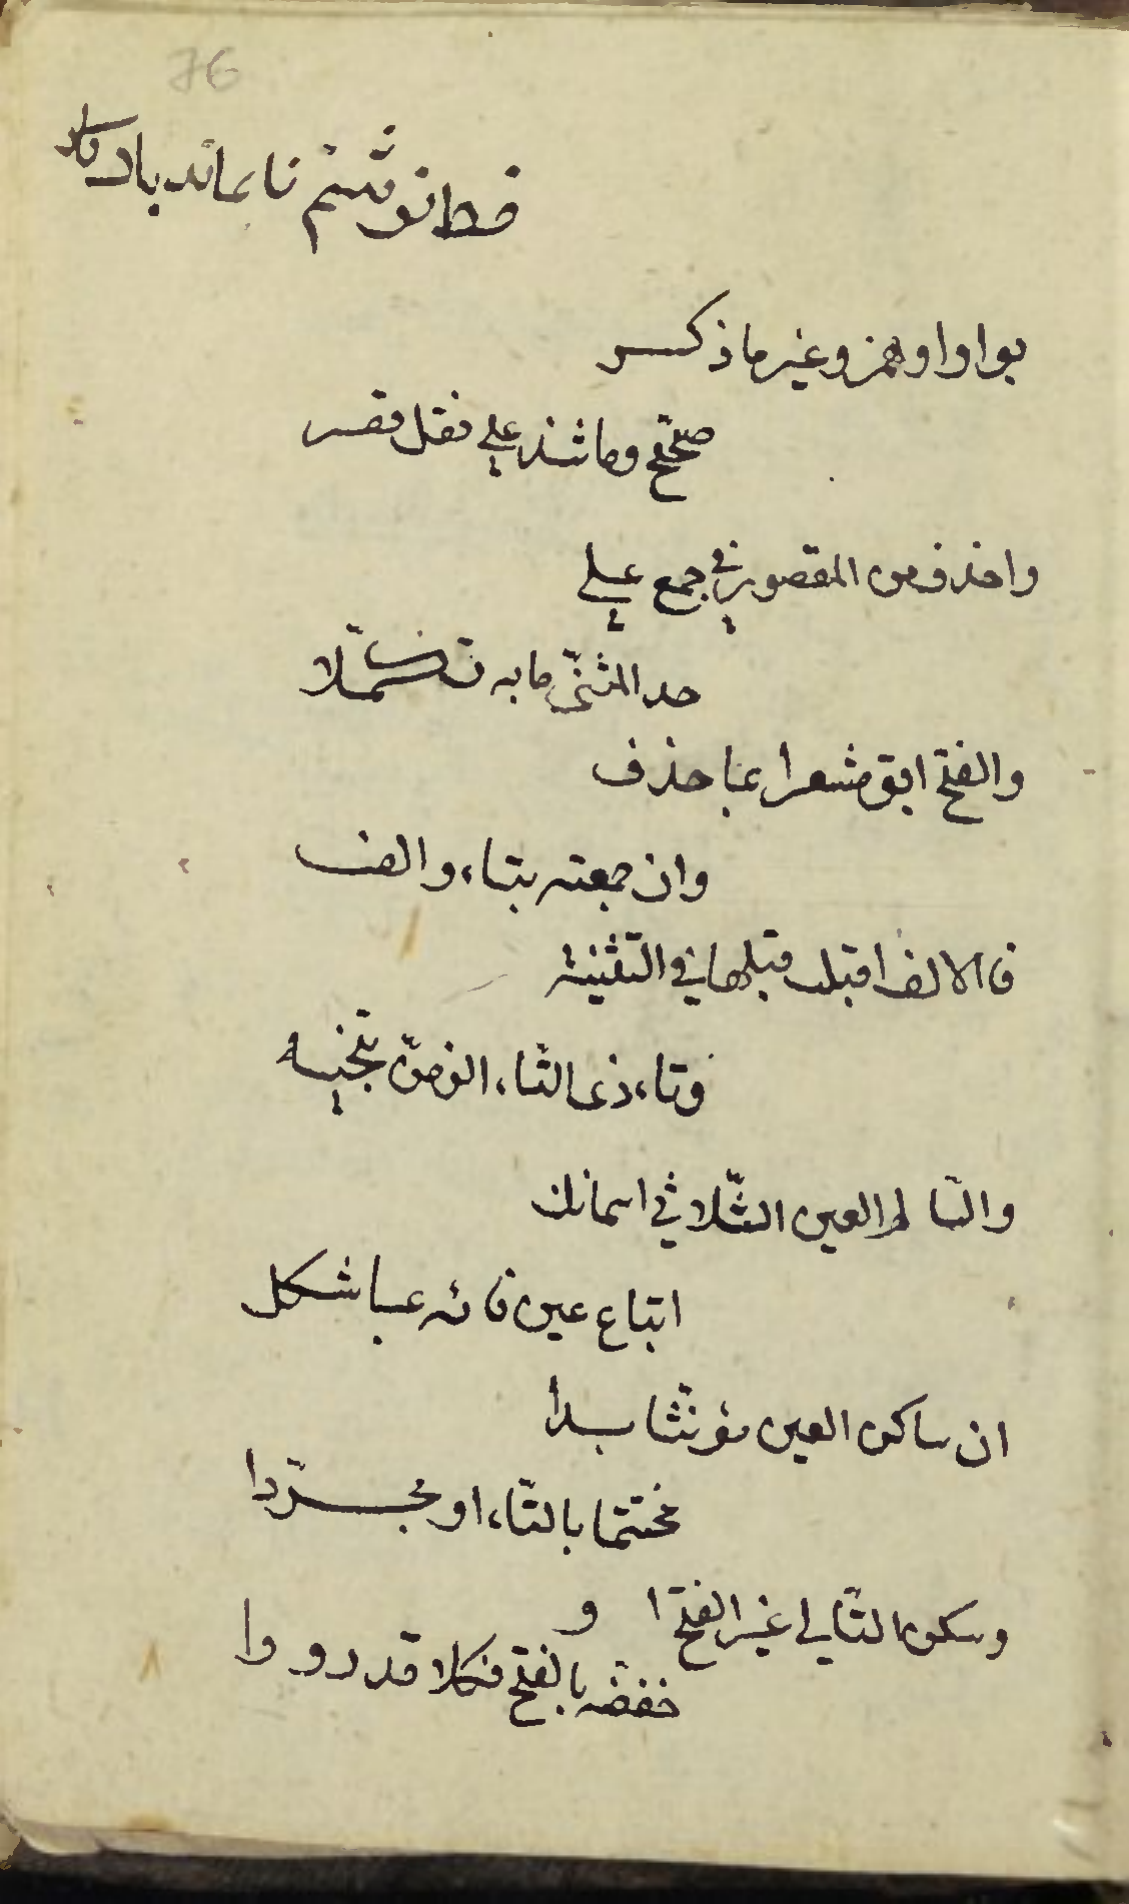 76
خط نوشتم تا بماند یادگار
بواو او همز وغير ما ذكر
صحح وما شذ على نقل قصر
واحذف من المقصور في جمع على
حد المثنى ما به تكملا
والفتح ابق مشعرا بما حذف
وان جمعته بتاء والف
فالالف اقلب قلبها في التثنية
وتاء ذى التاء الزمن تنحيه
والسالم العين الثلاثي اسما انل
اتباع عين فائه بما شكل
ان ساكن العين مؤنثا بدا
مختتما بالتاء او مجردا
وسكن التالي غير الفتح او
خففه بالفتح فكلا قد رووا